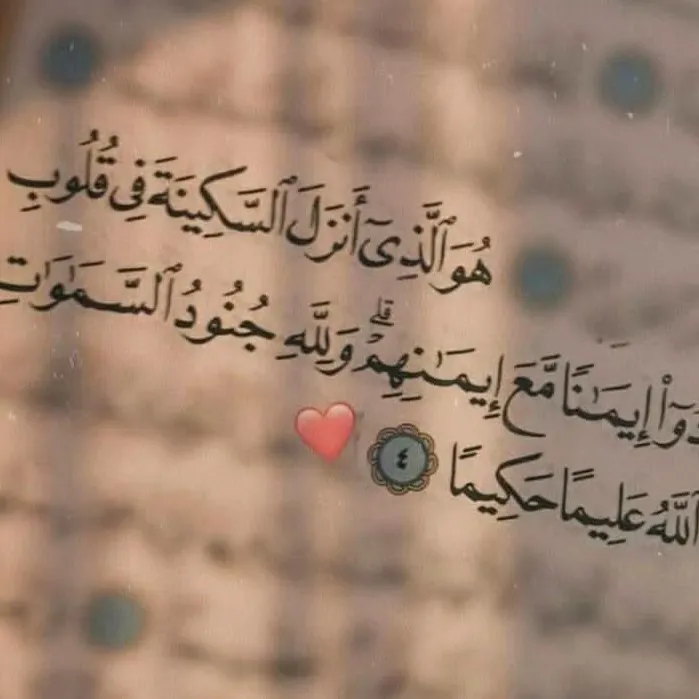 هُوَ ٱلَّذِىٓ أَنزَلَ ٱلسَّكِينَةَ فِى قُلُوبِ
إِيمَـٰنًا مَّعَ إِيمَـٰنِهِمْ ۗ وَلِلَّهِ جُنُودُ ٱلسَّمَـٰوَٰتِ
ٱللَّهُ عَلِيمًا حَكِيمًا ٤